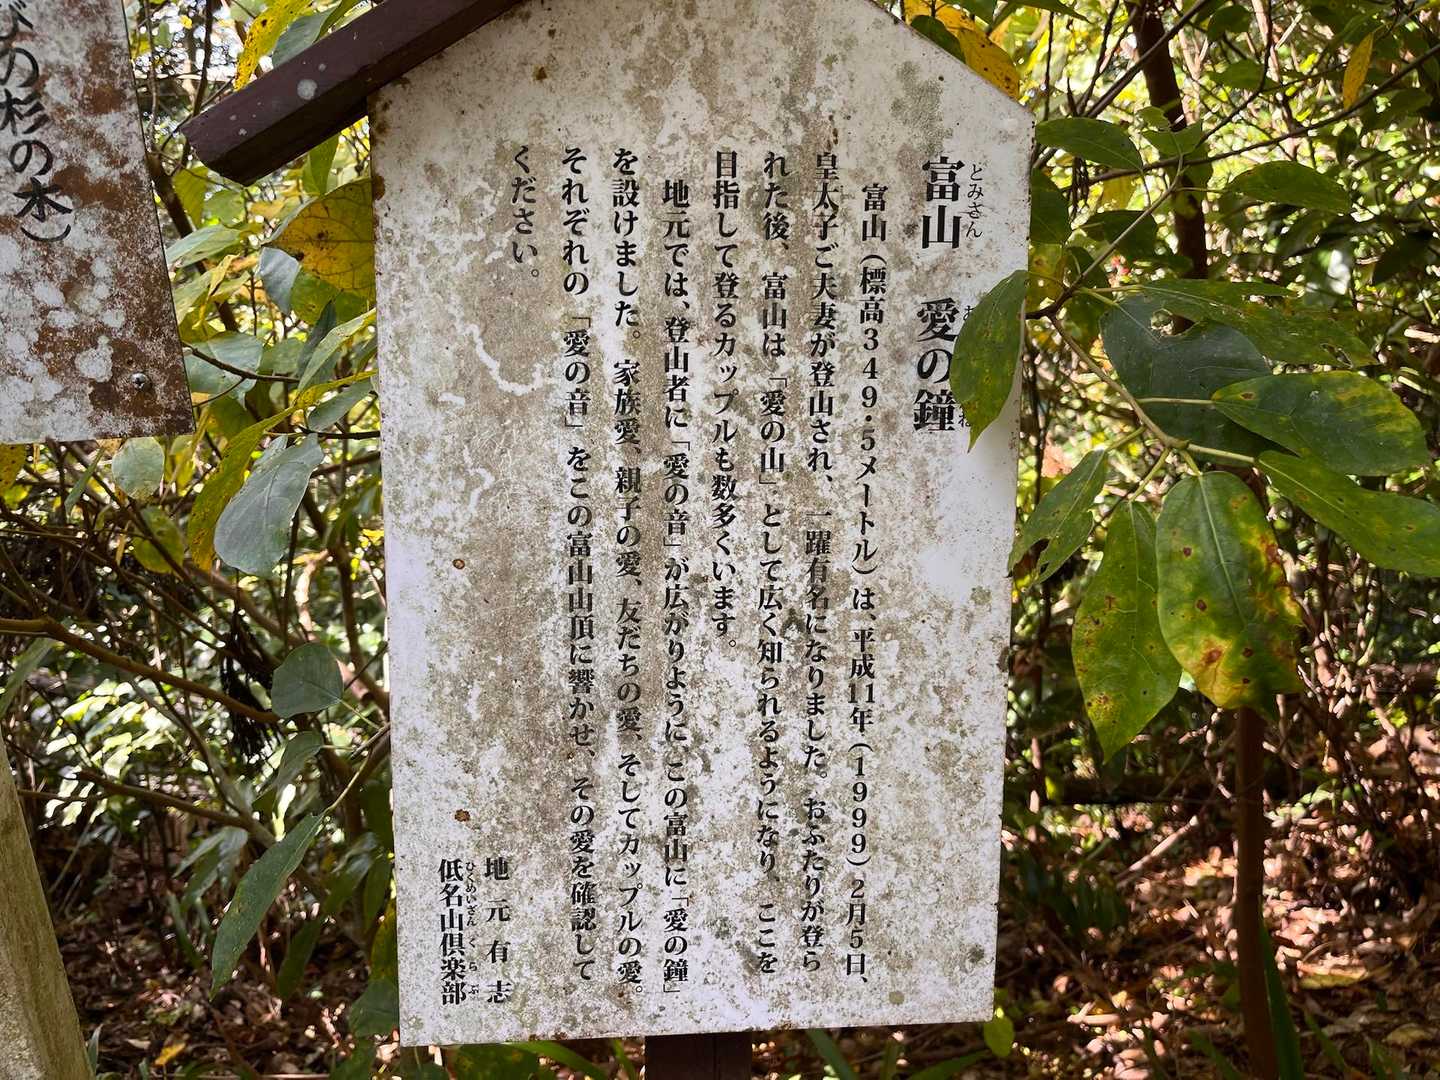 富山 愛の鐘
とみさん
富山（標高349・5メートル）は、平成11年（1999）2月5日、
皇太子ご夫妻が登山され、一躍有名になりました。おふたりが登ら
れた後、富山は「愛の山」として広く知られるようになり、ここを
目指して登るカップルも数多くいます。
地元では、登山者に「愛の音」が広がりように、この富山に「愛の鐘」
を設けました。家族愛、親子の愛、友だちの愛、そしてカップルの愛。
それぞれの「愛の音」をこの富山山頂に響かせ、その愛を確認して
ください。
地元有志
低名山倶楽部
ひくめいざんくらぶ
びの杉の木）